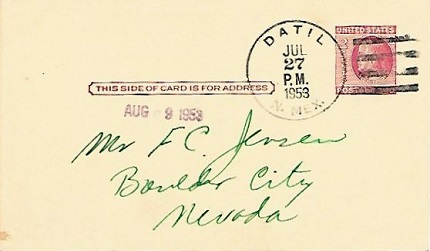 DATIL
JUL
27
P.M.
1953
N. MEX.
UNITED STATES
POSTAL
THIS SIDE OF CARD IS FOR ADDRESS
AUG -9 1953
Mr F C. Jensen
Boulder City
Nevada